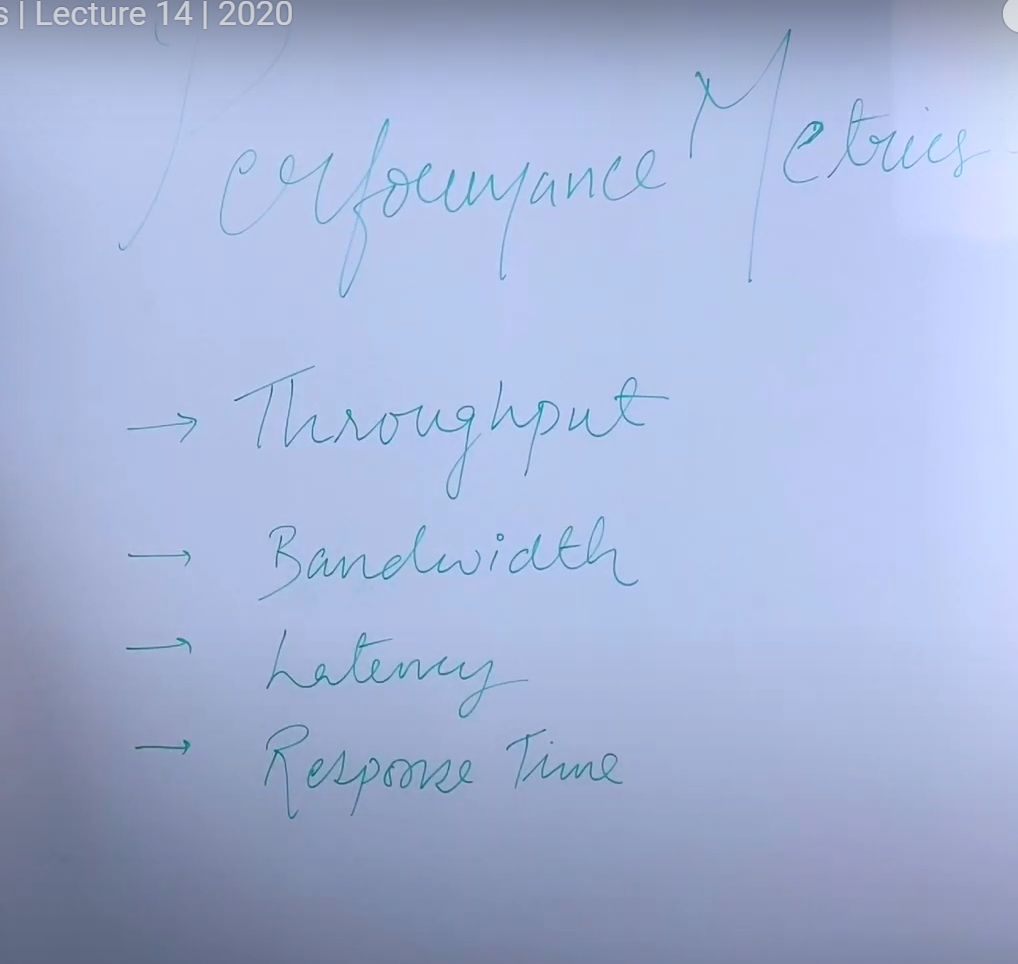 s | Lecture 14 | 2020
Performance Metrics
→ Throughput
→ Bandwidth
→ Latency
→ Response Time